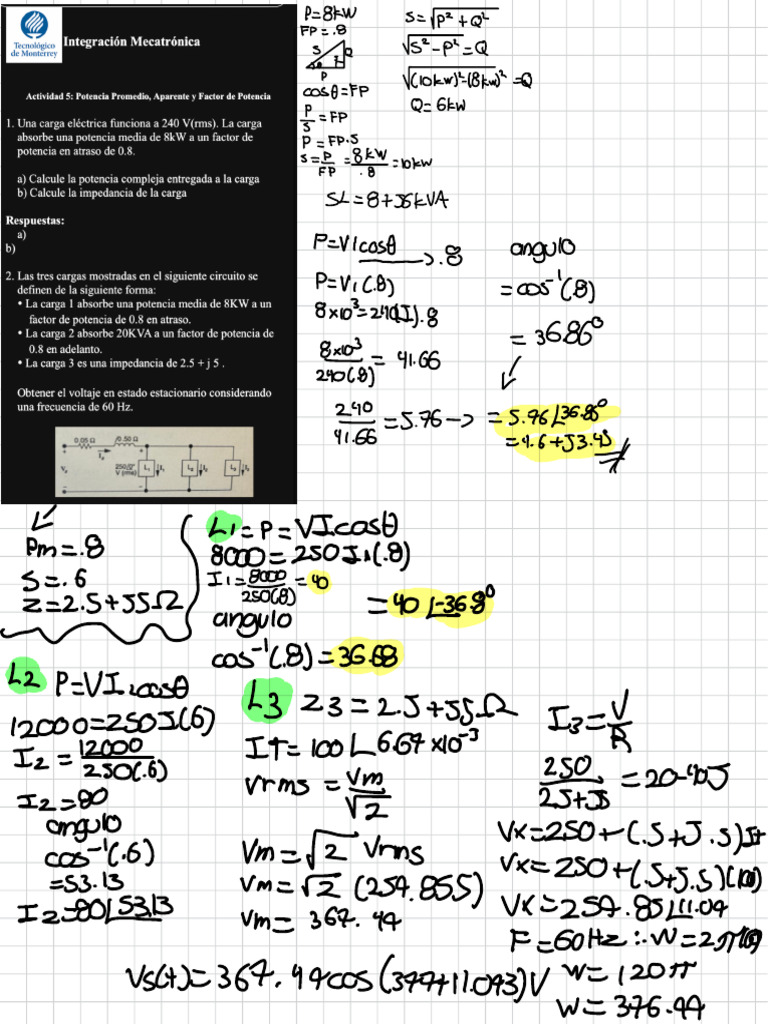 Tecnológico
de Monterrey
Integración Mecatrónica
Actividad 5: Potencia Promedio, Aparente y Factor de Potencia
1. Una carga eléctrica funciona a 240 V(rms). La carga
absorbe una potencia media de 8kW a un factor de
potencia en atraso de 0.8.
a) Calcule la potencia compleja entregada a la carga
b) Calcule la impedancia de la carga
Respuestas:
a)
b)
2. Las tres cargas mostradas en el siguiente circuito se
definen de la siguiente forma:
• La carga 1 absorbe una potencia media de 8KW a un
factor de potencia de 0.8 en atraso.
• La carga 2 absorbe 20KVA a un factor de potencia de
0.8 en adelanto.
• La carga 3 es una impedancia de 2.5 + j 5 .
Obtener el voltaje en estado estacionario considerando
una frecuencia de 60 Hz.
0.05 Ω
j0.50 Ω
+
Vs
-
Is
+
V (rms)
-
L1
I1
L2
I2
L3
I3
P=8kW
FP=.8
S
Q
P
cosθ=FP
P/S = FP
P = FP·S
S = P/FP = 8kW/.8 = 10kW
SL = 8+J6kVA
S = √P² + Q²
√S² - P² = Q
√(10kW)²-(8kW)² = Q
Q = 6kW
P=VIcosθ → .8
P=VI(.8)
8x10³=240(I).8
8x10³/240(.8) = 41.66
240/41.66 = 5.76 →
angulo
= cos⁻¹(.8)
= 36.86°
= 5.76∠36.86°
= 4.6+J3.45
Pm = .8
S = .6
Z = 2.5+J5Ω
L1 = P = VI.cosθ
8000 = 250I1(.8)
I1 = 8000/250(.8) = 40
angulo
= 40∠-36.8°
cos⁻¹(.8) = 36.68
L2 P=VI2cosθ
12000=250I(.6)
I2 = 12000/250(.6)
I2=80
angulo
cos⁻¹(.6)
=53.13
I2=80∠53.13
L3 Z3 = 2.5+J5Ω
IT = 100∠6.67x10⁻³
Vrms = Vm/√2
Vm = √2 Vrms
Vm = √2 (259.855)
Vm = 367.49
I3 = V/R
250/2.5+J5 = 20-40J
Vx=250+(.5+J.5)It
Vx=250+(.5+J.5)(100)
Vx=259.85∠11.09
F=60Hz ∴ W=2π(60)
W = 120π
W = 376.99
Vs(t)=367.49cos(377+11.093)V